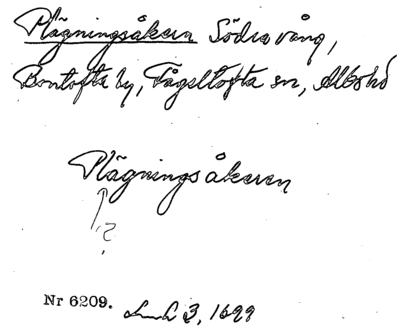 Plägningsåkern Södra vång,
Bontofta by, Fågeltofta sn, Albo hd
Plägningsåkeren
?
Nr 6209. Lmh 3, 1699